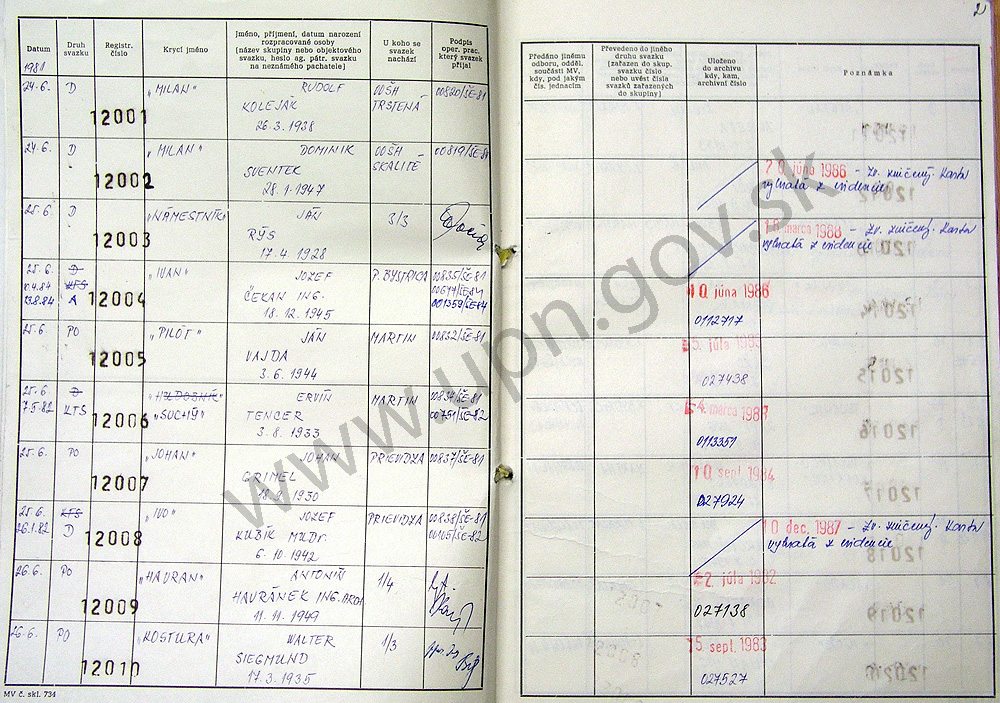 Datum
Druh svazku
Registr. číslo
Krycí jméno
Jméno, příjmení, datum narození rozpracované osoby (název skupiny nebo objektového svazku, heslo ag. pátr. svazku na neznámého pachatele)
U koho se svazek nachází
Podpis oper. prac. který svazek přijal
1981
24.6. D 12001 "MILAN" RUDOLF OOŠH 00820/ŠE-81
KOLEJÁK TRSTENÁ
26.3.1938
24.6. D 12002 "MILAN" DOMINIK OOŠH 00819/ŠE-81
SVENTEK SKALITÉ
28.1.1947
25.6. D 12003 "NÁMESTNÍK" JÁN 3/3
RÝS
17.4.1928
25.6. D 12004 "IVAN" JOZEF P. BYSTRICA 00835/ŠE-81
10.4.84 KTS ČEKAN ING.
A 18.12.1945 001359/ŠE-84
25.6. PO 12005 "PILÓT" JÁN MARTIN 00832/ŠE-81
VAJDA
3.6.1944
25.6 D 12006 ERVÍN MARTIN 00834/ŠE-81
7.5.82 KTS "SUCHÝ" TENCER 00751/ŠE-82
3.8.1933
25.6. PO 12007 "JOHAN" JOHAN PRIEVIDZA 00837/ŠE-81
GRIMEL
1930
25.6. KTS 12008 "IVO" JOZEF PRIEVIDZA 00838/ŠE-81
26.1.82 D KUBÍK MUDr. 00105/ŠE-82
6.10.1942
26.6. PO 12009 "HAVRAN" ANTONÍN 1/4
HAVRÁNEK ING. ARCH
11.11.1949
26.6. PO 12010 "KOSTURA" WALTER 1/3
SIEGMUND
17.3.1935
MV č. skl. 734
2
Předáno jinému odboru, odděl. součásti MV, kdy, pod jakým čís. jednacím
Převedeno do jiného druhu svazku (zařazen do skup. svazku číslo nebo uvést čísla svazků zařazených do skupiny)
Uloženo do archivu kdy, kam, archivní číslo
Poznámka
20 júna 1986 - Zv. zničený. Karta
vybratá z evidencie
18 marca 1988 - Zv. zničený. Karta
vybratá z evidencie
10 júna 1986
0112717
5. júla
027438
4. marca 1987
0113351
10 sept. 1984
027924
10 dec. 1987 - Zv. zničený. Karta
vybratá z evidencie
2. júla 1982
027138
15 sept. 1983
027527
www.upn.gov.sk